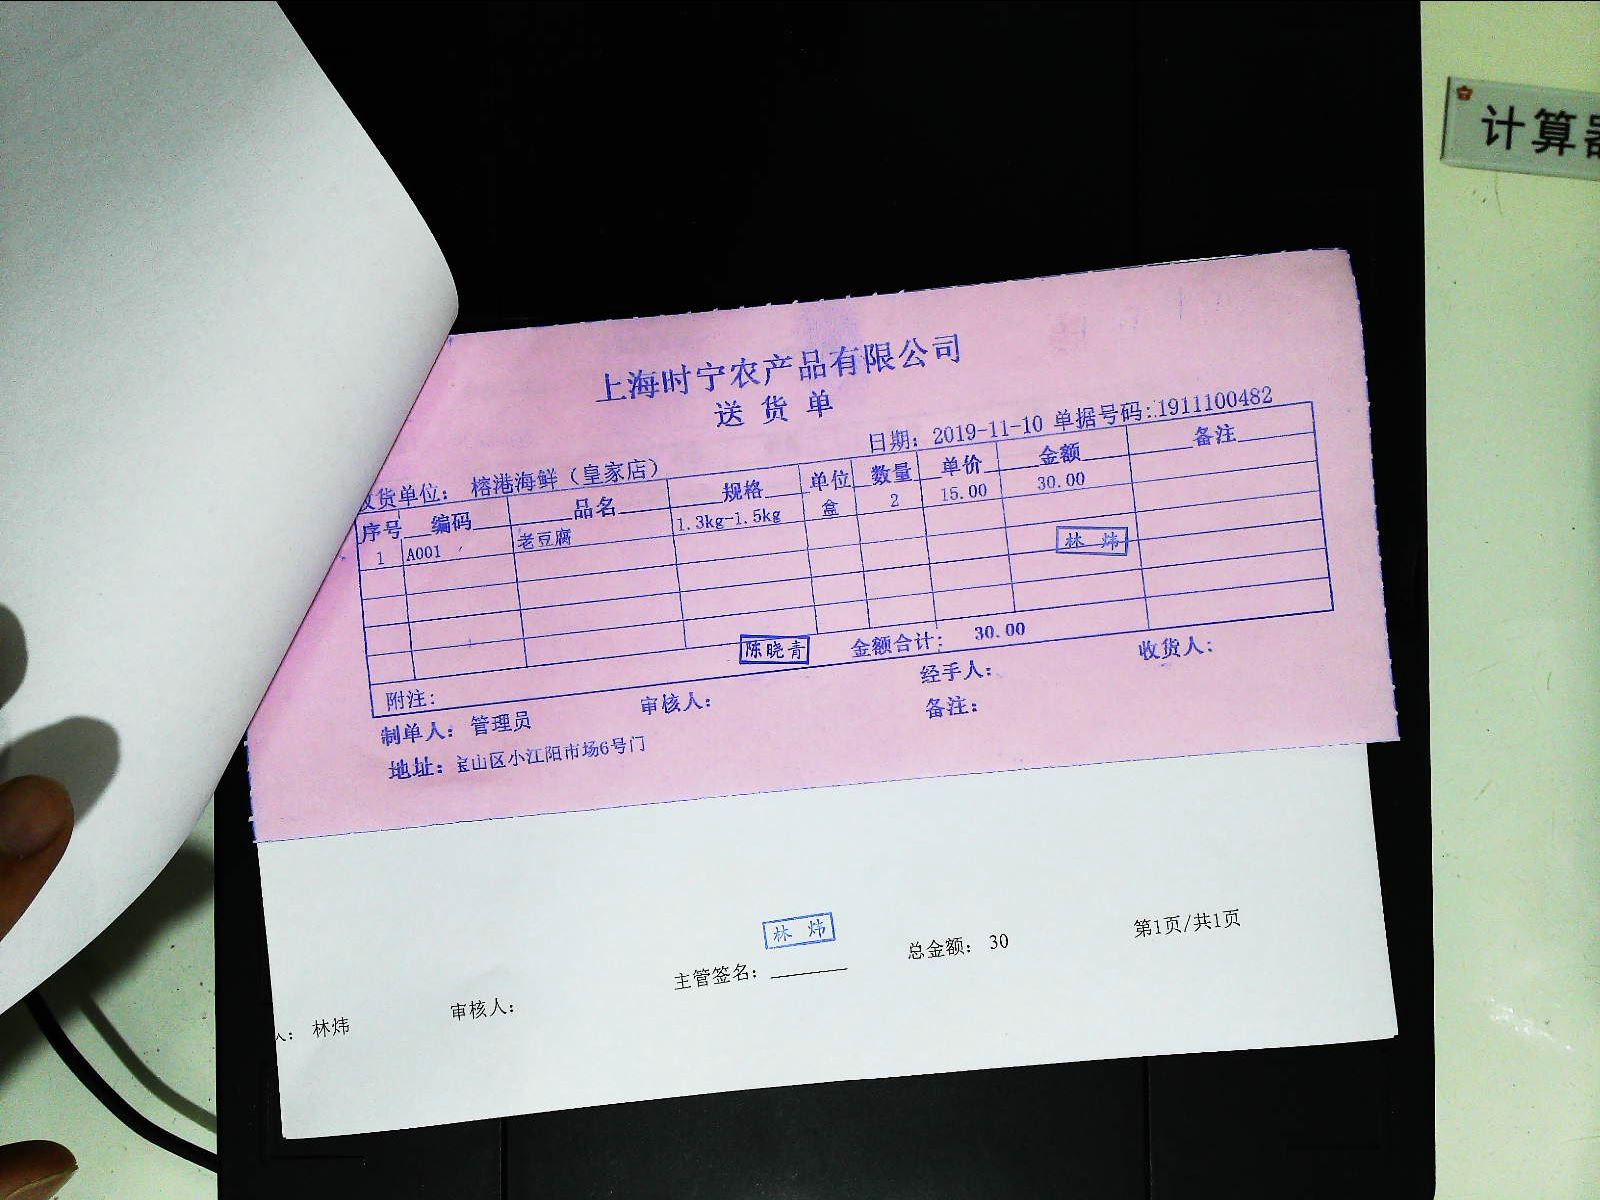 计算
上海时宁农产品有限公司
送 货 单
日期: 2019-11-10 单据号码: 1911100482
货单位: 榕港海鲜（皇家店）
序号 编码 品名 规格 单位 数量 单价 金额 备注
1 A001 老豆腐 1.3kg-1.5kg 盒 2 15.00 30.00
林 炜
陈晓青
附注: 金额合计: 30.00
制单人: 管理员 审核人: 经手人: 收货人:
地址: 宝山区小江阳市场6号门 备注:
林 炜
人: 林炜 审核人: 主管签名: 总金额: 30 第1页/共1页